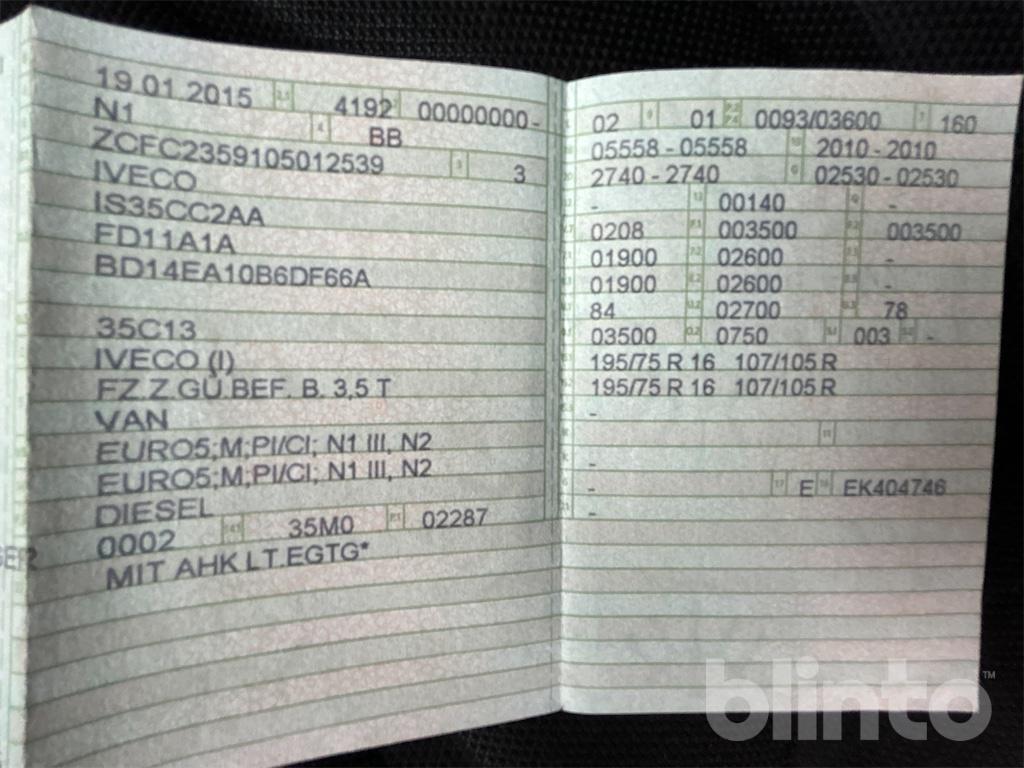 19.01.2015 4192 00000000 -
N1 BB
ZCFC2359105012539 3
IVECO
IS35CC2AA
FD11A1A
BD14EA10B6DF66A
35C13
IVECO (I)
FZ.Z.GÜ.BEF. B. 3,5 T
VAN
EURO5;M;PI/CI; N1 III, N2
EURO5;M;PI/CI; N1 III, N2
DIESEL
0002 35M0 02287
MIT AHK LT.EGTG*
02 01 0093/03600 160
05558 - 05558 2010 - 2010
2740 - 2740 02530 - 02530
- 00140 -
0208 003500 003500
01900 02600 -
01900 02600 -
84 02700 78
03500 0750 003 -
195/75 R 16 107/105 R
195/75 R 16 107/105 R
-
-
- E EK404746
-
blinto™